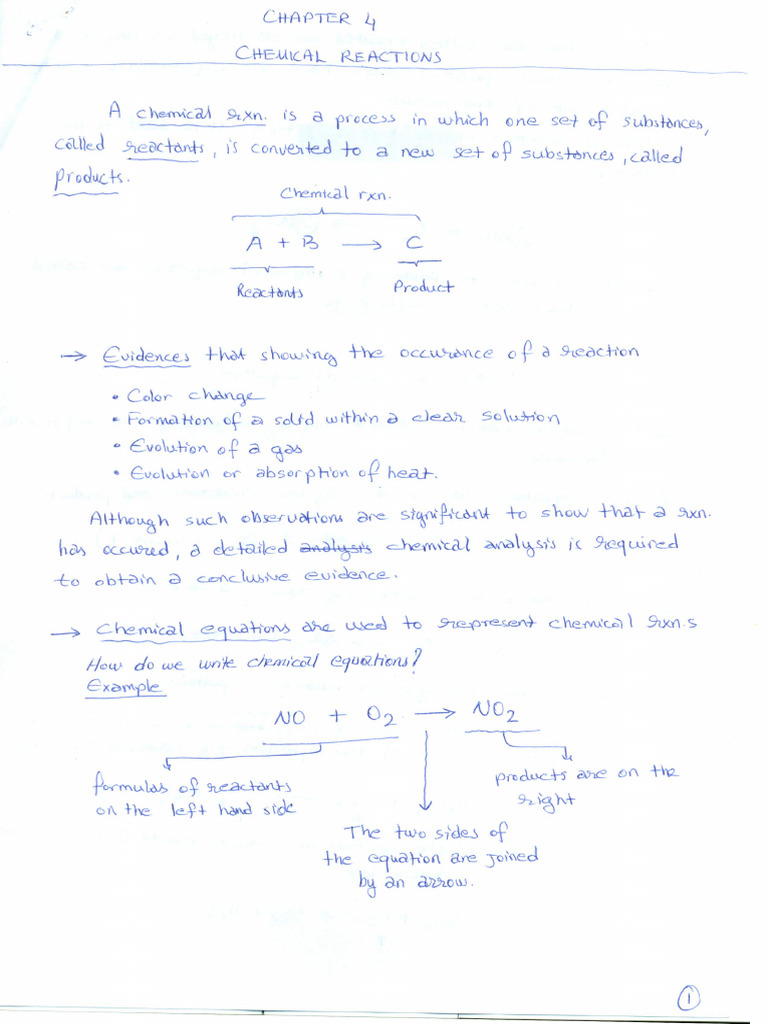 CHAPTER 4
CHEMICAL REACTIONS
A chemical rxn. is a process in which one set of substances,
called reactants, is converted to a new set of substances, called
products.
Chemical rxn.
A + B → C
Reactants Product
→ Evidences that showing the occurance of a reaction
• Color change
• Formation of a solid within a clear solution
• Evolution of a gas
• Evolution or absorption of heat.
Although such observations are significant to show that a rxn.
has occured, a detailed analysis chemical analysis is required
to obtain a conclusive evidence.
→ Chemical equations are used to represent chemical rxn.s
How do we write chemical equations?
Example
NO + O₂ → NO₂
formulas of reactants
on the left hand side
products are on the
right
The two sides of
the equation are joined
by an arrow.
1